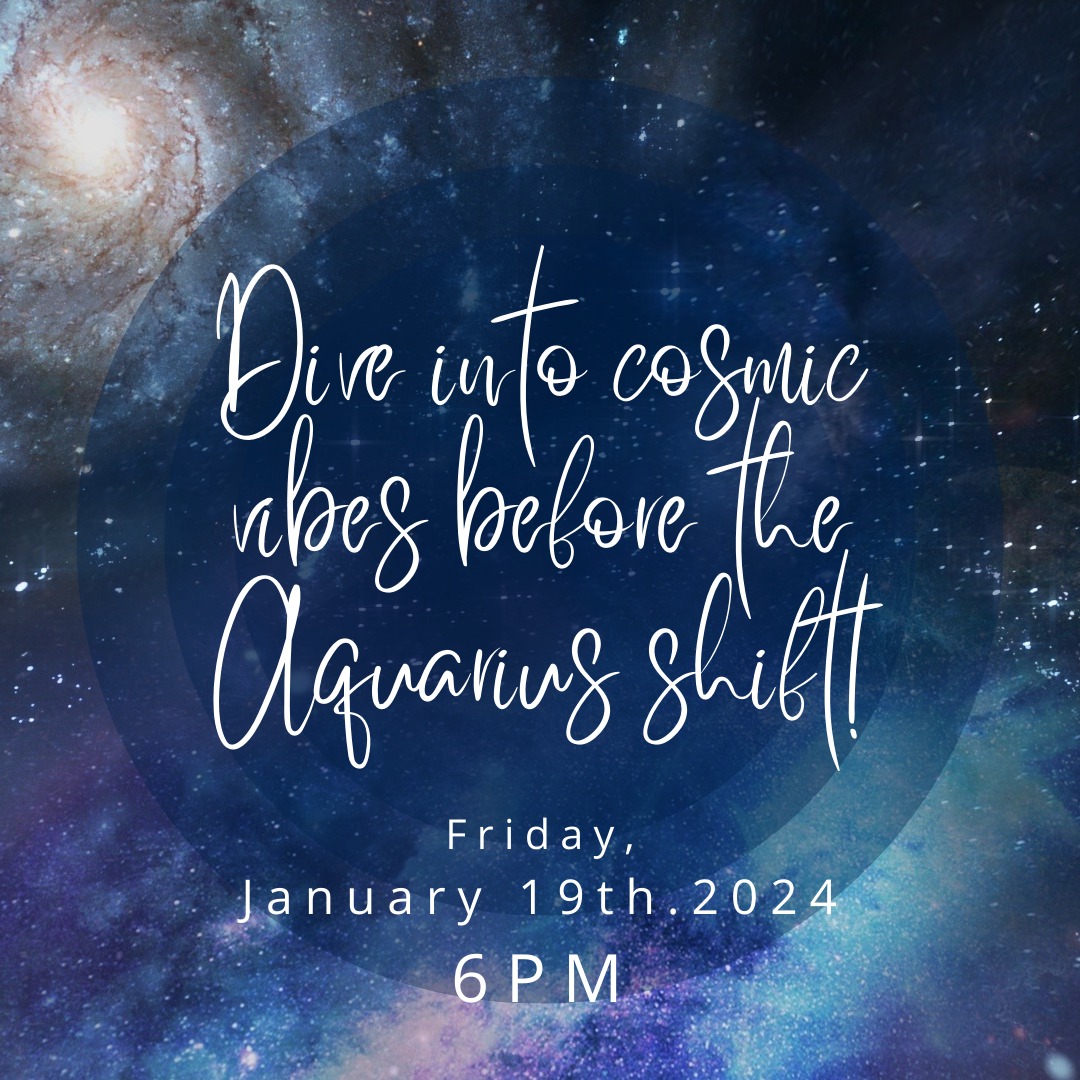 Dive into cosmic
vibes before the
Aquarius shift!
Friday,
January 19th.2024
6PM